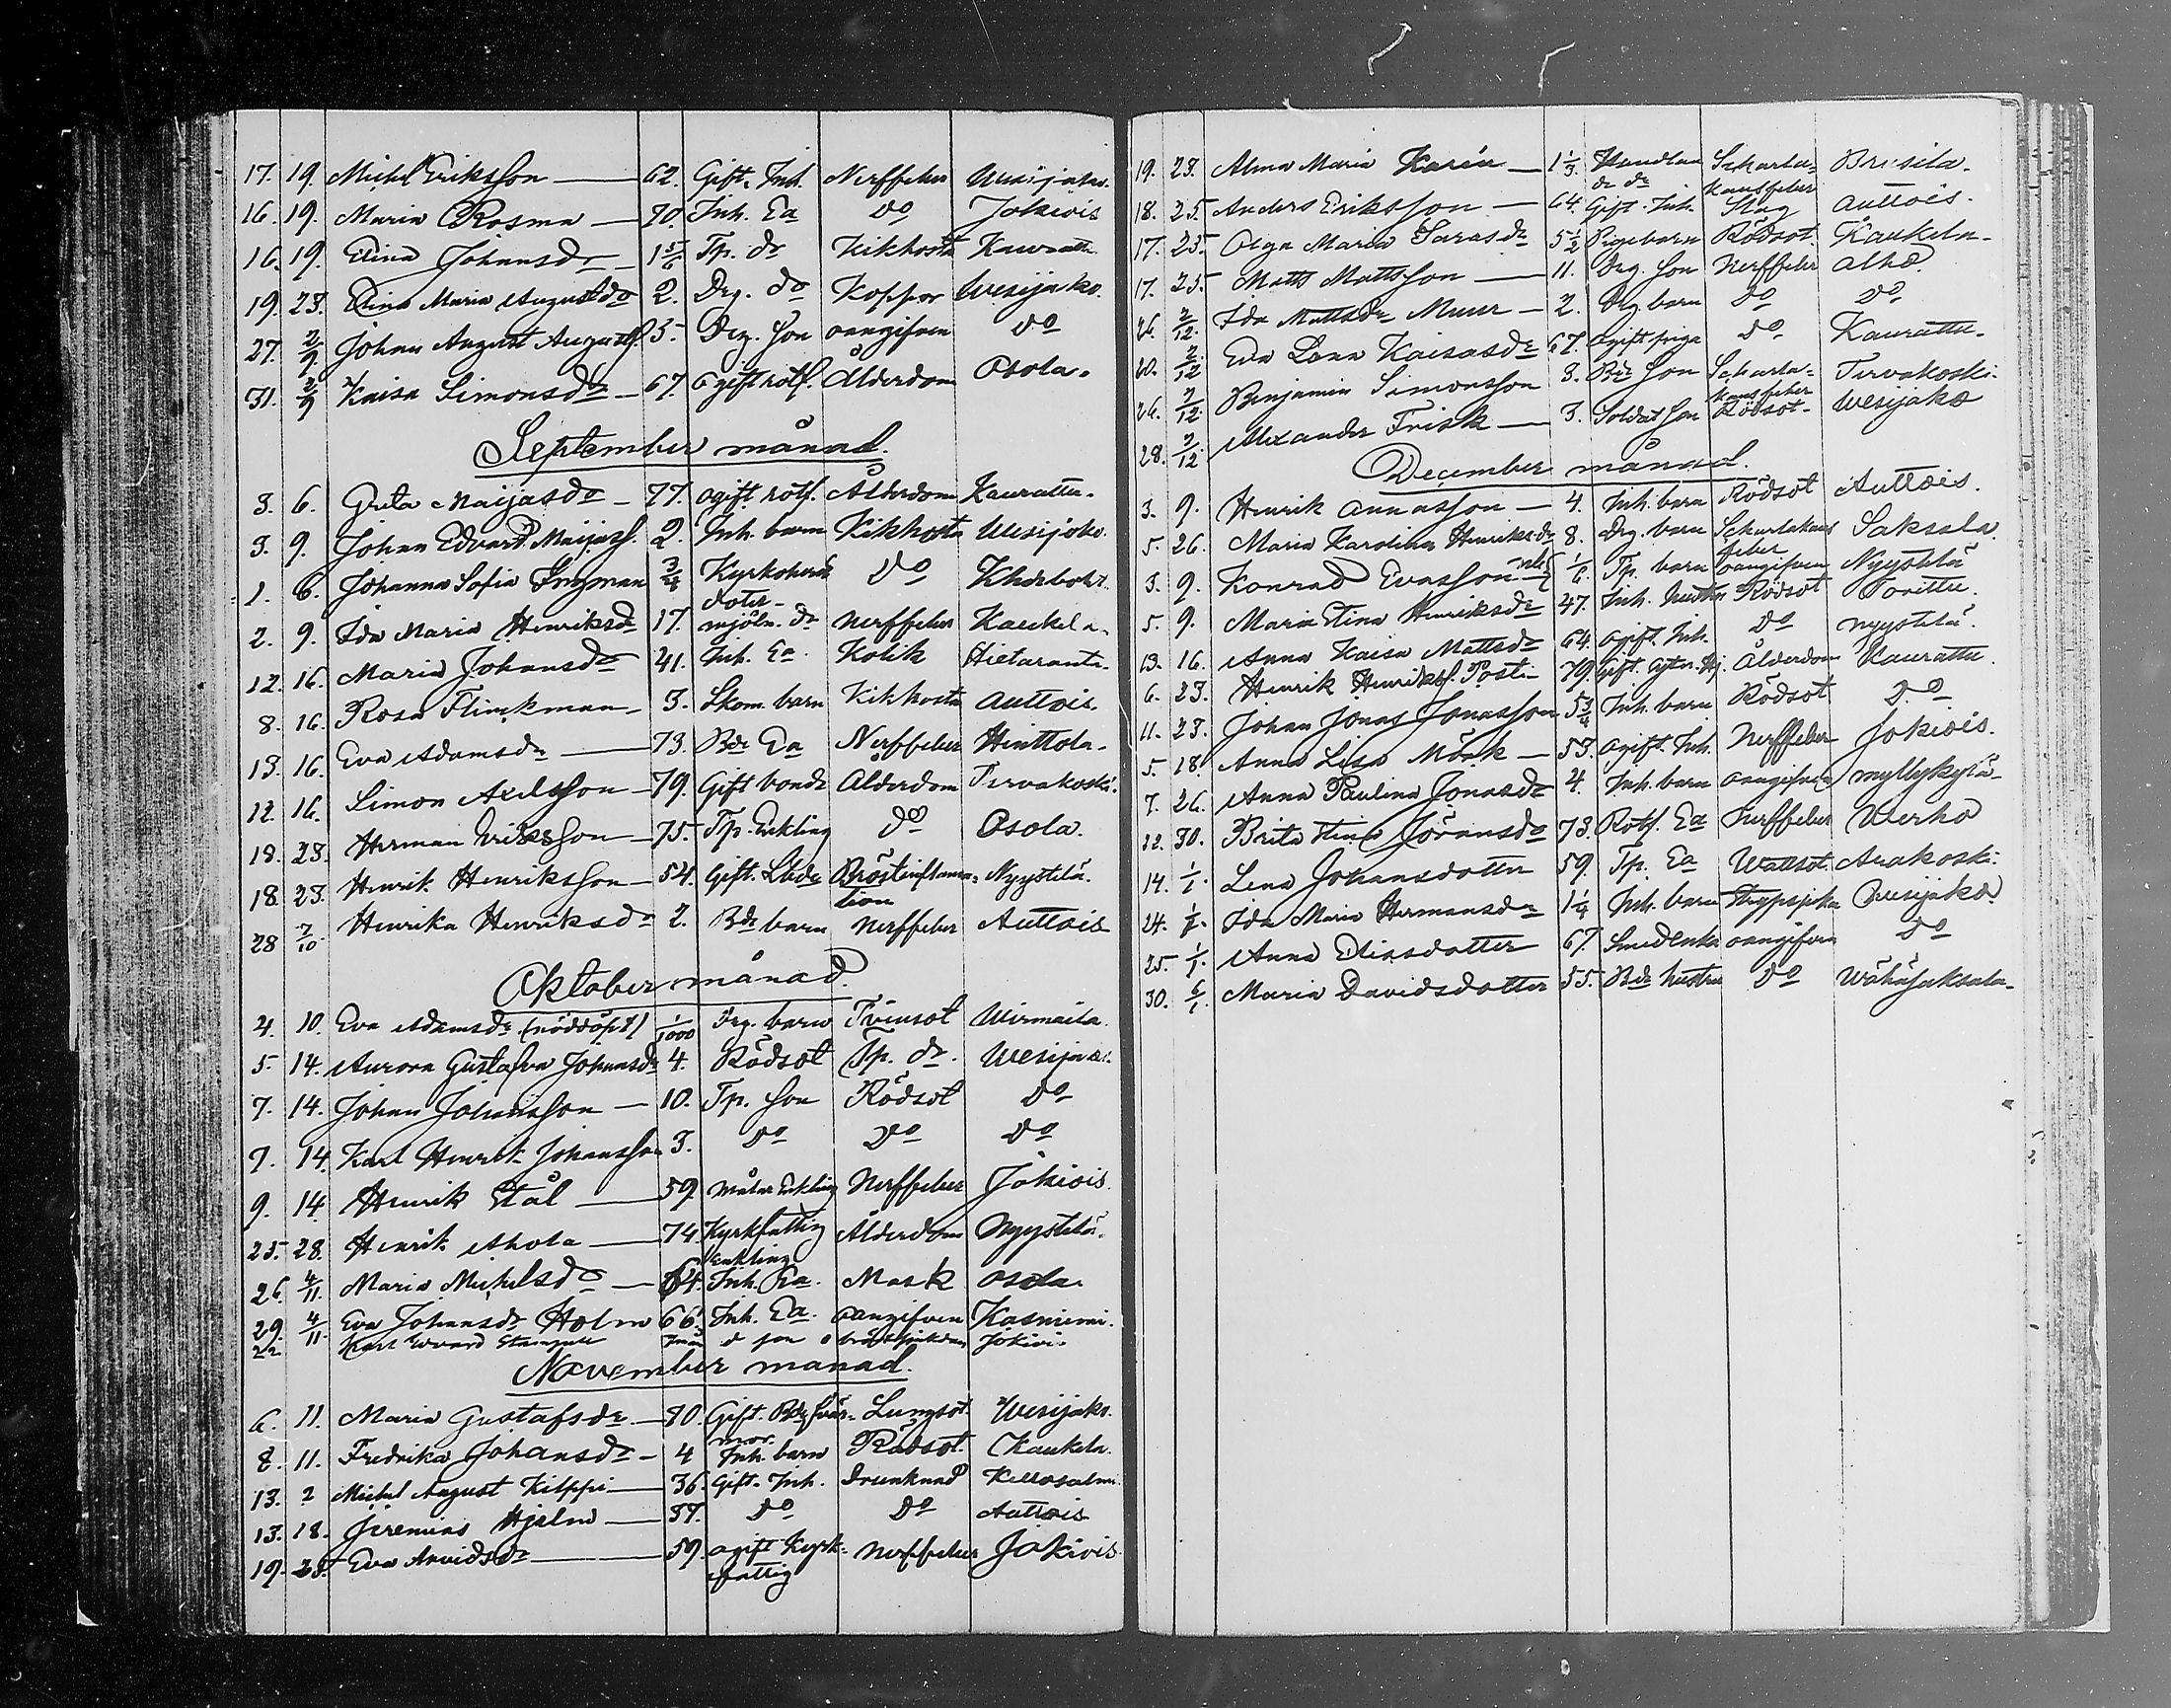 17. 19. Michel Eriksson — 62. Gift. Inh. Nerffeber Wesijako.
16. 19. Maria Rosma — 70. Inh. Ea do Jokiois
16. 19. Elina Johansdr — 1 5/6 Tp. dr Kikhosta Kaurattu
19. 23. Elina Maria Augustdr 2. Drg. do Koppor Wesijako.
27. 2/9. Johan August Augustss. 3. Drg. son oangifven do
31. 2/9 Kaisa Simonsdr — 67. Ogift rotf. Ålderdom Osola.
September månad.
3. 6. Greta Maijasdr — 77. ogift rotf. Ålderdom Kaurattu.
3. 9. Johan Edvard Maijass. 2. Inh. barn Kikhosta Wesijako.
1. 6. Johanna Sofia Ingman 3/4 Kyrkoherde do
doter.
2. 9. Ida Maria Henriksdr 17. mjöln. dr Nerffeber Kaukela.
12. 16. Maria Johansdr 41. Inh. Ea Kolik Hietaranta.
8. 16. Rosa Flinkman — 3. Skom. barn Kikhosta Auttois.
13. 16. Eva Adamsdr — 73. Bde Ea Nerffeber Hinttola.
12. 16. Simon Axelsson — 79. Gift bonde Ålderdom Tervakoski.
18. 23. Herman Eriksson — 75. Tp. Enkling do Osola.
18. 23. Henrik Henriksson — 54. Gift. Bröstinflama- Nyystelä.
tion
28 7/10. Henrika Henriksdr 2. Bde barn Nerffeber Auttois
Oktober månad.
4. 10. Eva Adamsdr (nöddöpt) 1/1000 Drg. barn Tvinsot Wirmaila.
5. 14. Aurora Gustafva Johansdr 4. Rödsot Tp. dr. Wesijako.
7. 14. Johan Johansson — 10. Tp. son Rödsot do
7. 14. Karl Henrik Johansson 3. do do do
9. 14. Henrik Stål — 59. Målar Enkling Nerffeber Jokiois.
25. 28. Henrik Ahola — 74. Kyrkfattig Ålderdom Nyystelä.
enkling
26. 4/11. Maria Michelsdr — 64. Inh. Ea. Mask Osola.
29. 4/11. Eva Johansdr Holm 66. Inh. Ea. oangifven Kasniemi.
22 Karl Edvard son Jokiois
November månad.
6. 11. Maria Gustafsdr — 80. Gift. Bde svär- Lungsot. Wesijako.
mor
8. 11. Fredrika Johansdr — 4 Inh. barn Rödsot. Kaukela.
13. 2 Michel August Kilppi — 36. Gift. Inh. Drunknad Kellosalmi.
13. 18. Jeremias Hjelm — 37. do do Auttois
19. 25. Eva Arvidsdr — 59. ogift Kyrk- Nerffeber Jokiois.
fattig
19. 23. Alma Maria Karén — 1 1/3. Handlan Scharla- Brusila.
de dr kansfeber
18. 25. Anders Eriksson — 64. Gift. Inh. Slag Auttois.
17. 25. Olga Maria Sarasdr 5 1/2 Pigebarn Rödsot. Kaukela.
17. 25. Matts Mattsson — 11. Drg. son Nerffeber Alho.
26. 2/12. Ida Mattsdr — 2. Drg barn do do
20. 2/12. Eva Lena Kaisasdr 67. Ogift piga do Kaurattu.
26. 2/12. Benjamin Simonsson 3. Bde son Scharla- Tervakoski.
kansfeber
28. 2/12. Alexander Frisk — 3. Soldat son Rödsot. Wesijako
December månad.
3. 9. Henrik Annasson — 4. Inh. barn Rödsot Auttois.
5. 26. Maria Karolina Henriksdr 8. Drg. barn Scharlakans Saksala.
feber
3. 9. Konrad Evasson 1/6. Tp. barn oangifven Nyystelä
5. 9. Maria Stina Henriksdr 47. Inh. hustru Rödsot Torittu.
13. 16. Anna Kaisa Mattsdr 64. ogift. Inh. do Nyystelä.
6. 23. Henrik Henrikss. Posti 79. Gift. Ålderdom Kaurattu.
11. 23. Johan Jonas Jonasson 5 3/4 Inh. barn Rödsot do
5. 18. Anna Lisa Mörk — 53. ogift. Inh. Nerffeber Jokiois.
7. 26. Anna Paulina Jonasdr 4. Inh. barn oangifven Myllykylä.
12. 30. Brita Stina Göransdr 73. Rotf. Ea Nerffeber Werho
14. 1/1. Lena Johansdotter 59. Tp. Ea Wattsot. Arrakoski.
24. 1/1. Ida Maria Hermansdr 1 1/4 Inh. barn Strypsjuka Wesijako
25. 1/1. Anna Eliasdotter 67. Smedenka oangifven do
30. 6/1. Maria Davidsdotter 55. Bde hustru do Wähäsaksala.